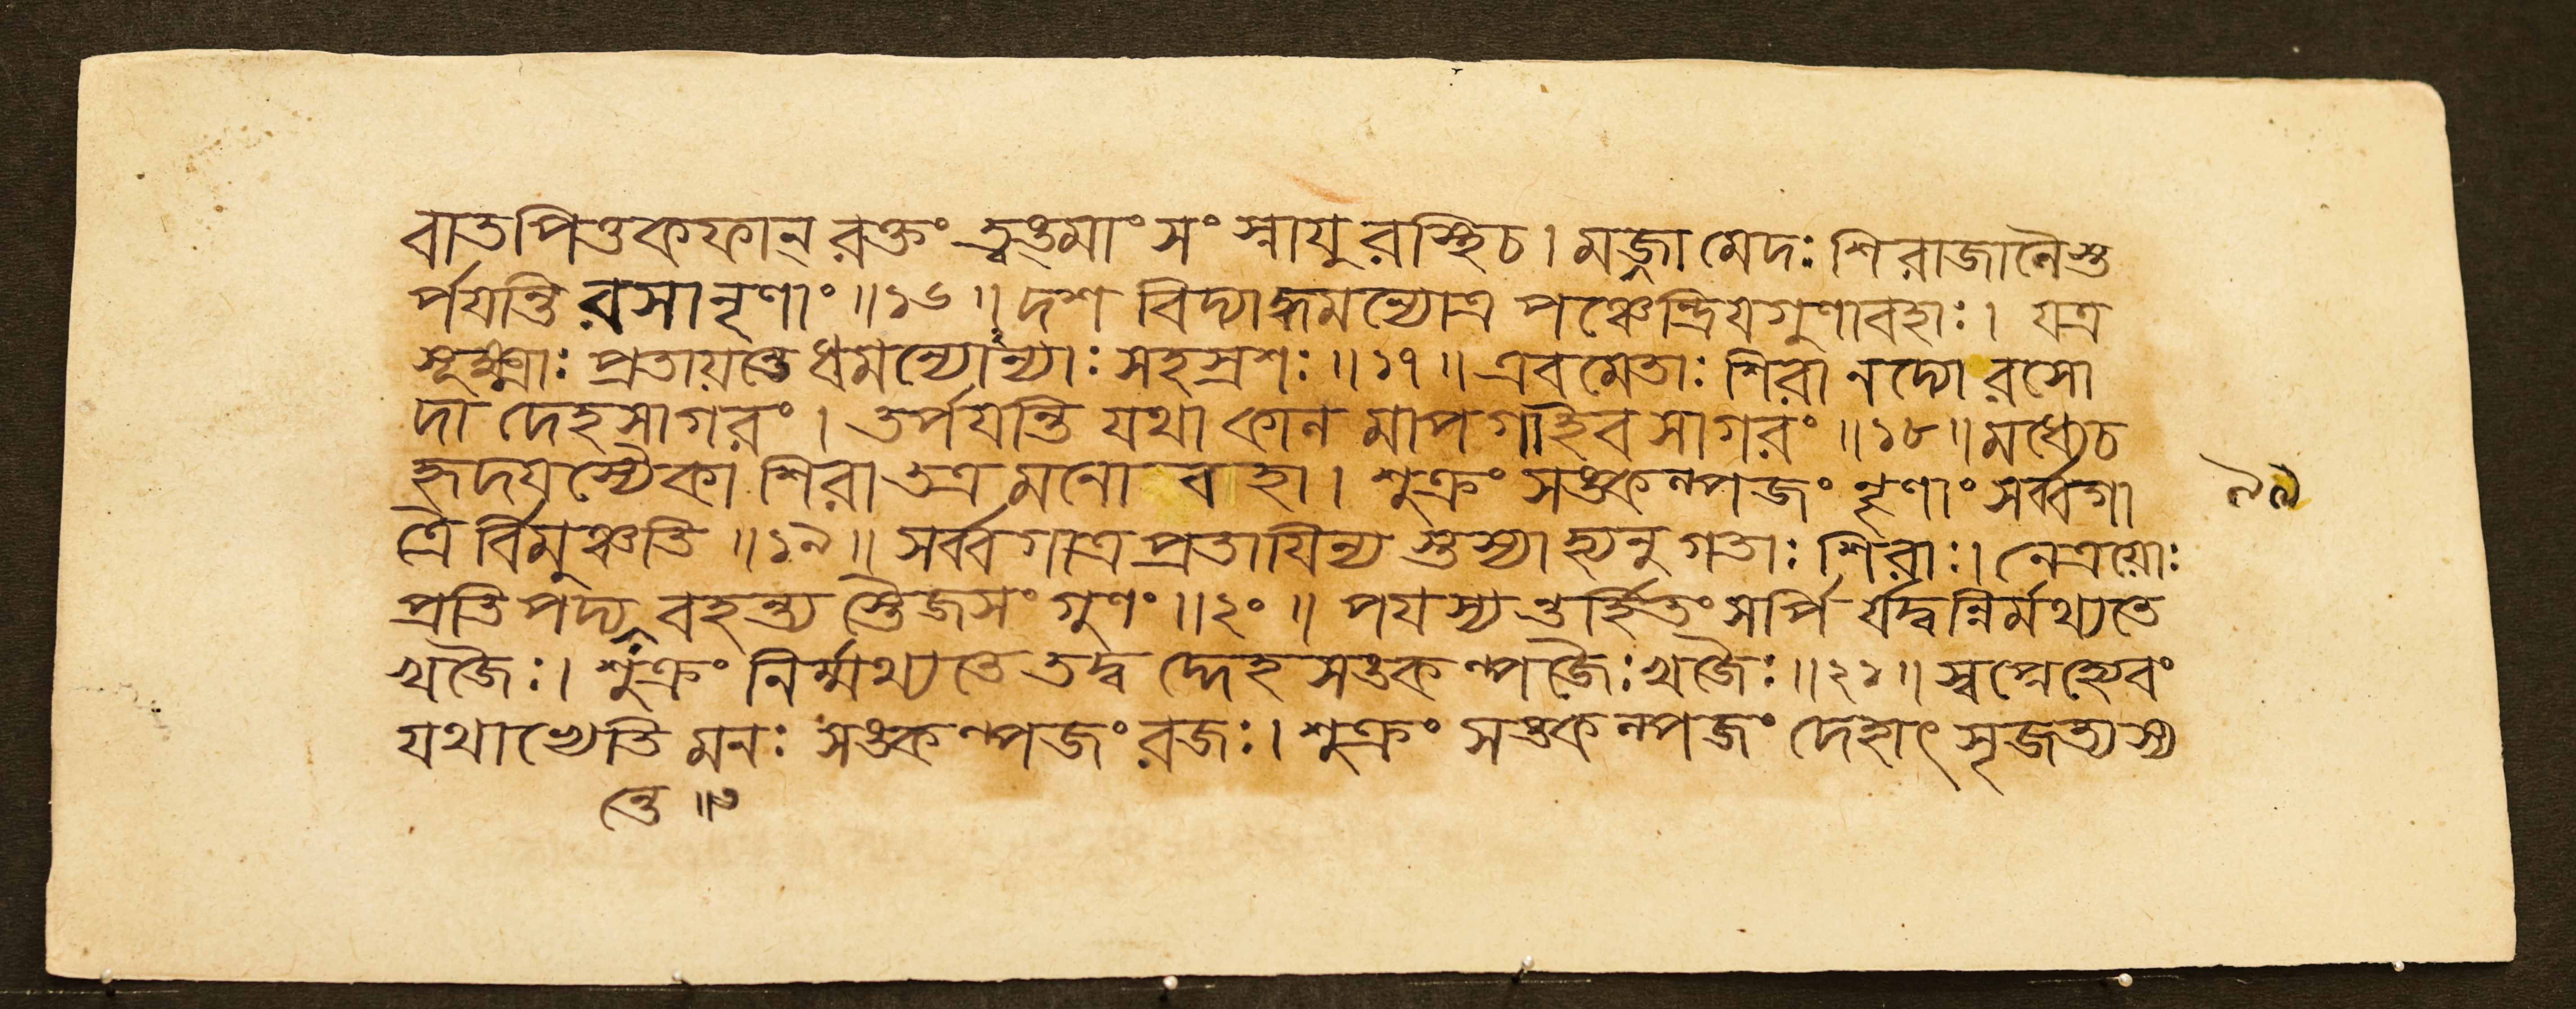 বাতপিত্তকফান্ রক্তং ত্বঙ্মাংসং স্নাযু রস্থিচ। মজ্জা মেদঃ শিরাজালৈস্ত
র্পযন্তি রসা নৃণাং ॥১৬॥ দশ বিদ্যাদ্ধমন্যোত্র পঞ্চেন্দ্রিযগুণাবহাঃ। যত্র
সূক্ষ্মাঃ প্রতায়ন্তে ধমন্যোন্যাঃ সহস্রশঃ ॥১৭॥ এবমেতাঃ শিরা নদ্যো রসো
দা দেহসাগরং। তর্পযন্তি যথা কাল মাপগাইব সাগরং ॥১৮॥ মধ্যেচ
হৃদযস্যৈকা শিরা তত্র মনো বহা। শুক্রং সঙকল্পজং নৃণাং সর্ব্বগা
ত্রৈ র্বিমুঞ্চতি ॥১৯॥ সর্ব্বগাত্রপ্রতাযিন্য স্তস্যা হ্যনুগতাঃ শিরাঃ। নেত্রয়োঃ
প্রতিপদ্য বহন্ত্য স্তৈজসং গুণং ॥২০॥ পযস্যন্তর্হিতং সর্পি র্যদ্বন্নির্মথ্যতে
খজৈঃ। শুক্রং নির্ম্মথ্যতে তদ্ব দ্দেহ সঙকল্পজৈঃ খজৈঃ ॥২১॥ স্বপ্নেহ্যেবং
যথাভ্যেতি মনঃ সঙকল্পজং রজঃ। শুক্রং সঙকল্পজং দেহাৎ সৃজত্যস্য
৯৯